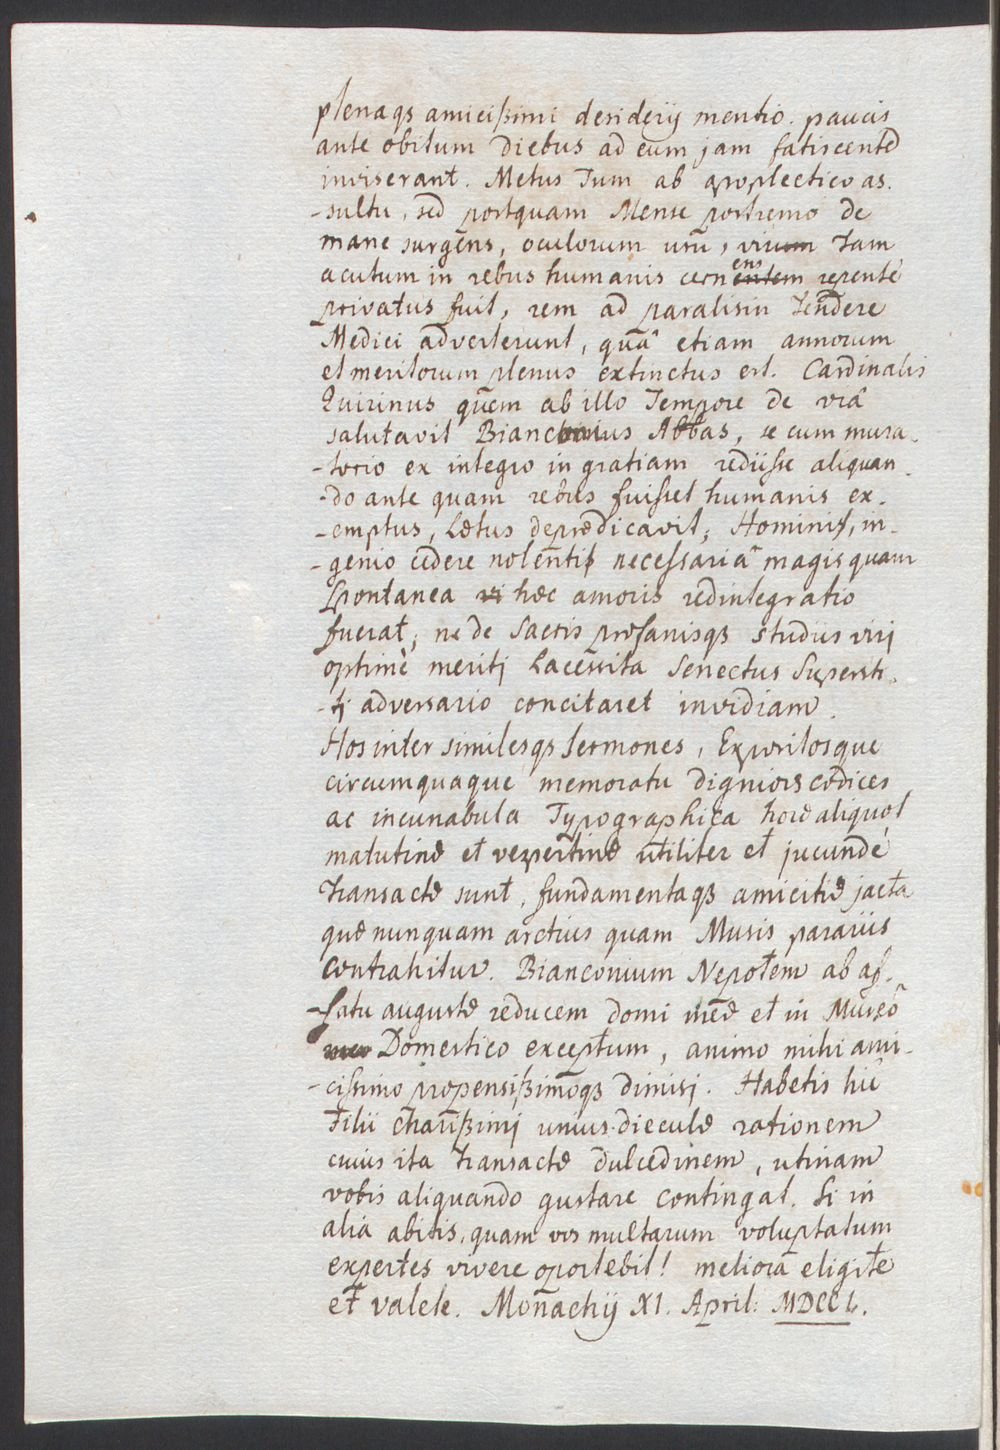 plenaqȝ amicißimi desiderij mentio. paucis
ante obitum diebus ad eum jam fatiscentē
inviserant. Metus Tum ab apoplectico as-
-sultu, sed postquam Mense postremo de
mane surgens, oculorum usū, virum Tam
acutum in rebus humanis cernentem ens repentè
privatus fuit, rem ad paralisin Tendere
Medici adverterunt, quâ etiam annorum
et meritorum plenus extinctus est. Cardinalis
Quirinus quem ab illo Tempore de viâ
salutavit Bianconius Abbas, se cum mura-
-torio ex integro in gratiam rediisse aliquan-
-do ante quam rebus fuisset humanis ex-
-emptus, lætus deprædicavit; Hominis, in-
-genio cedere nolentis necessaria magis quam
spontanea vi hæc amoris redintegratio
fuerat; ne de Sacris profanisqȝ studiis viri
optimè meritj lacessita Senectus Supersti-
-tj adversario concitaret invidiam.
Hos inter similesqȝ sermones, Expositosque
circumquaque memoratu digniores codices
ac incunabula Typographica horæ aliquot
matutinæ et vespertinæ utiliter et jucundè
Transactæ sunt, fundamentaqȝ amicitiæ jacta
quæ nunquam arctius quam Musis parariis
contrahitur. Bianconium Nepotem ab af-
-flatu augustæ reducem domi meæ et in Museo
meo Domestico exceptum, animo mihi ami-
-cissimo propensißimoqȝ dimisi. Habetis hic
Filii charißimj unius dieculæ rationem
cuius ita Transactæ dulcedinem, utinam
vobis aliquando gustare contingat. Si in
alia abitis, quam vos multarum voluptatum
expertes vivere oportebit! meliora eligite
et valete. Monachij XI. April: MDCCL.